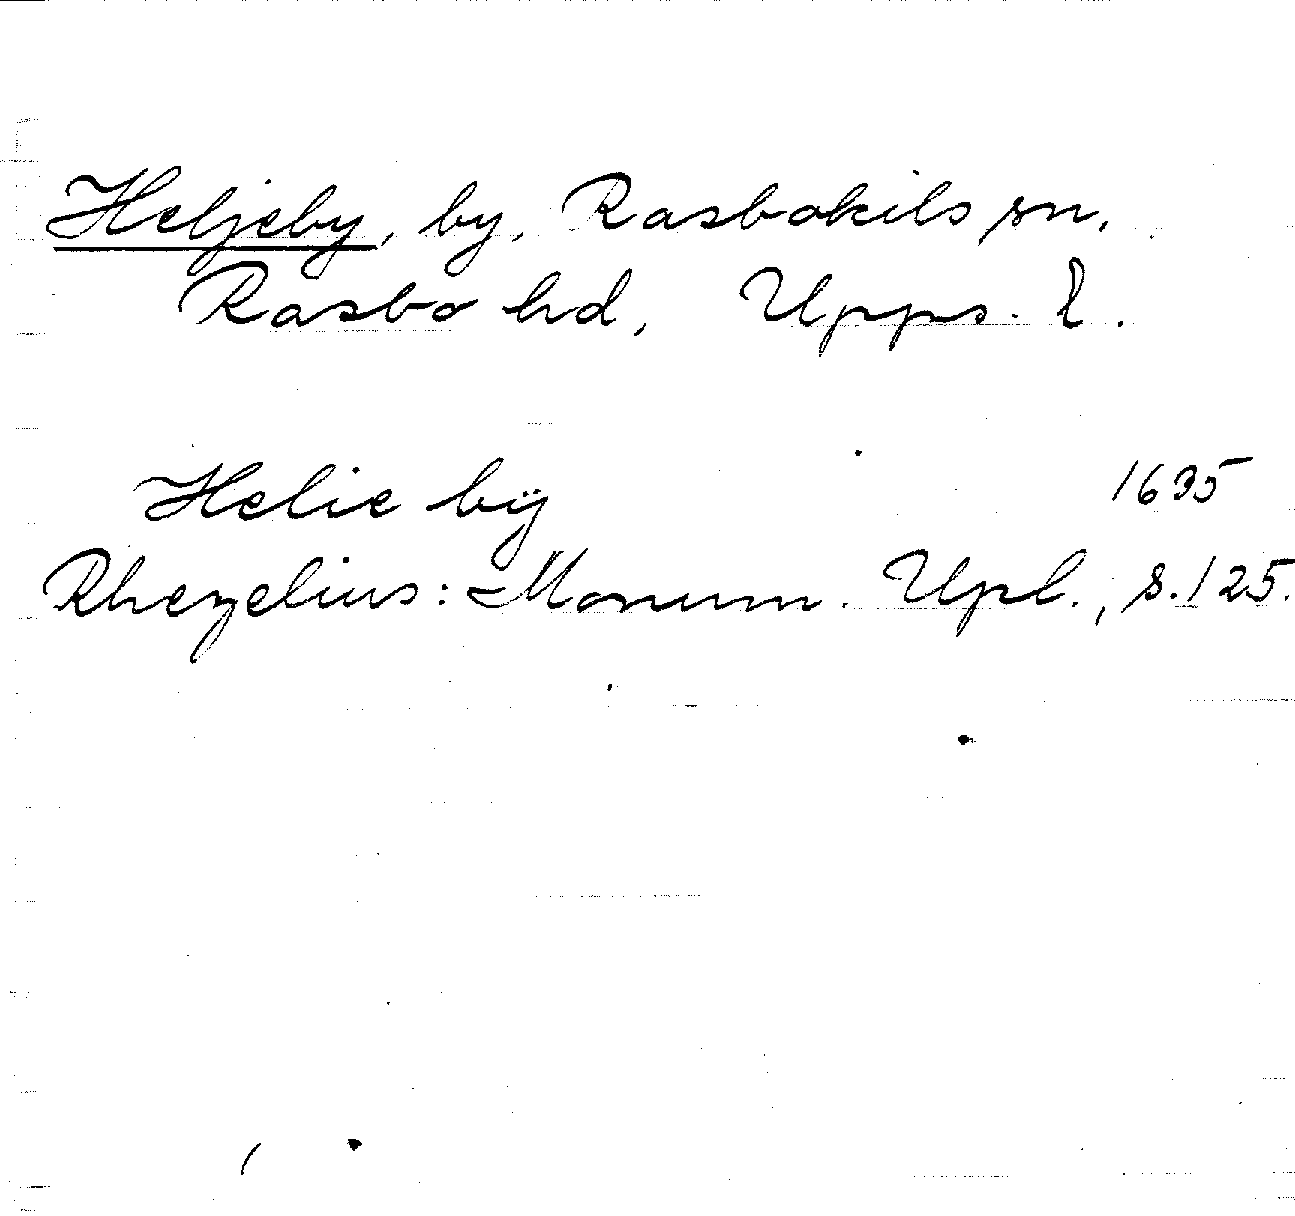 Heljeby, by, Rasbokils sn.
Rasbo hd, Upps. l.
Helie bÿ 1635
Rhezelius: Monum. Upl., s. 125.